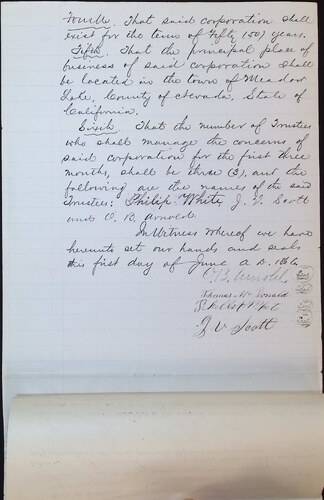 Fourth. That said corporation shall
exist for the term of fifty (50) years.
Fifth. That the principal place of
business of said corporation shall
be located in the town of Meadow
Lake, County of Nevada, State of
California.
Sixth. That the number of Trustees
who shall manage the concerns of
said corporation for the first three
months, shall be three (3), and the
following are the names of the said
Trustees: Philip White, J. V. Scott
and O. B. Arnold.
In Witness whereof we have
hereunto set our hands and seals
this first day of June A. D. 1866.
O. B. Arnold
Thomas McDonald
J. V. Scott